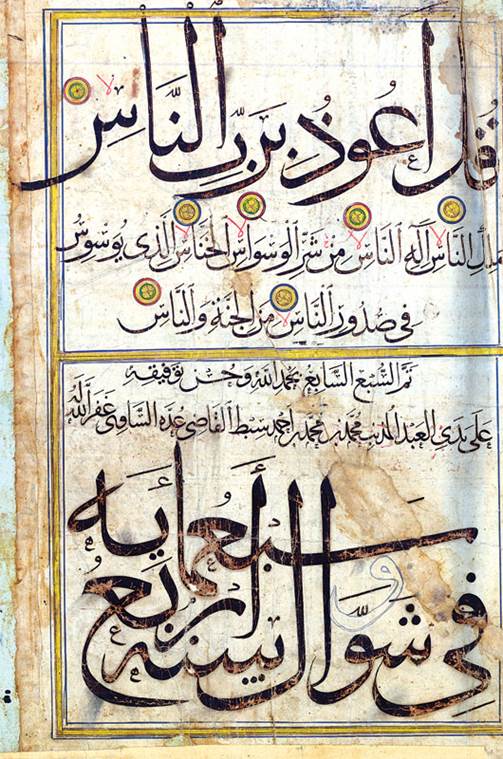 قُلْ اَعُوذُ بِرَبِّ النَّاسِ
مَلِكِ النَّاسِ اِلَهِ النَّاسِ مِنْ شَرِّ الْوَسْوَاسِ الْخَنَّاسِ الَّذِي يُوَسْوِسُ
فِي صُدُورِ النَّاسِ مِنَ الْجِنَّةِ وَالنَّاسِ
تم السُّبع السَّابع بحمد الله وحسن توفيقه
على يدي العبد المذنب محمد بن محمد بن احمد سبط القاضي الساوي غفر الله له
في شوّال سنه أربع
و سبعمأيه